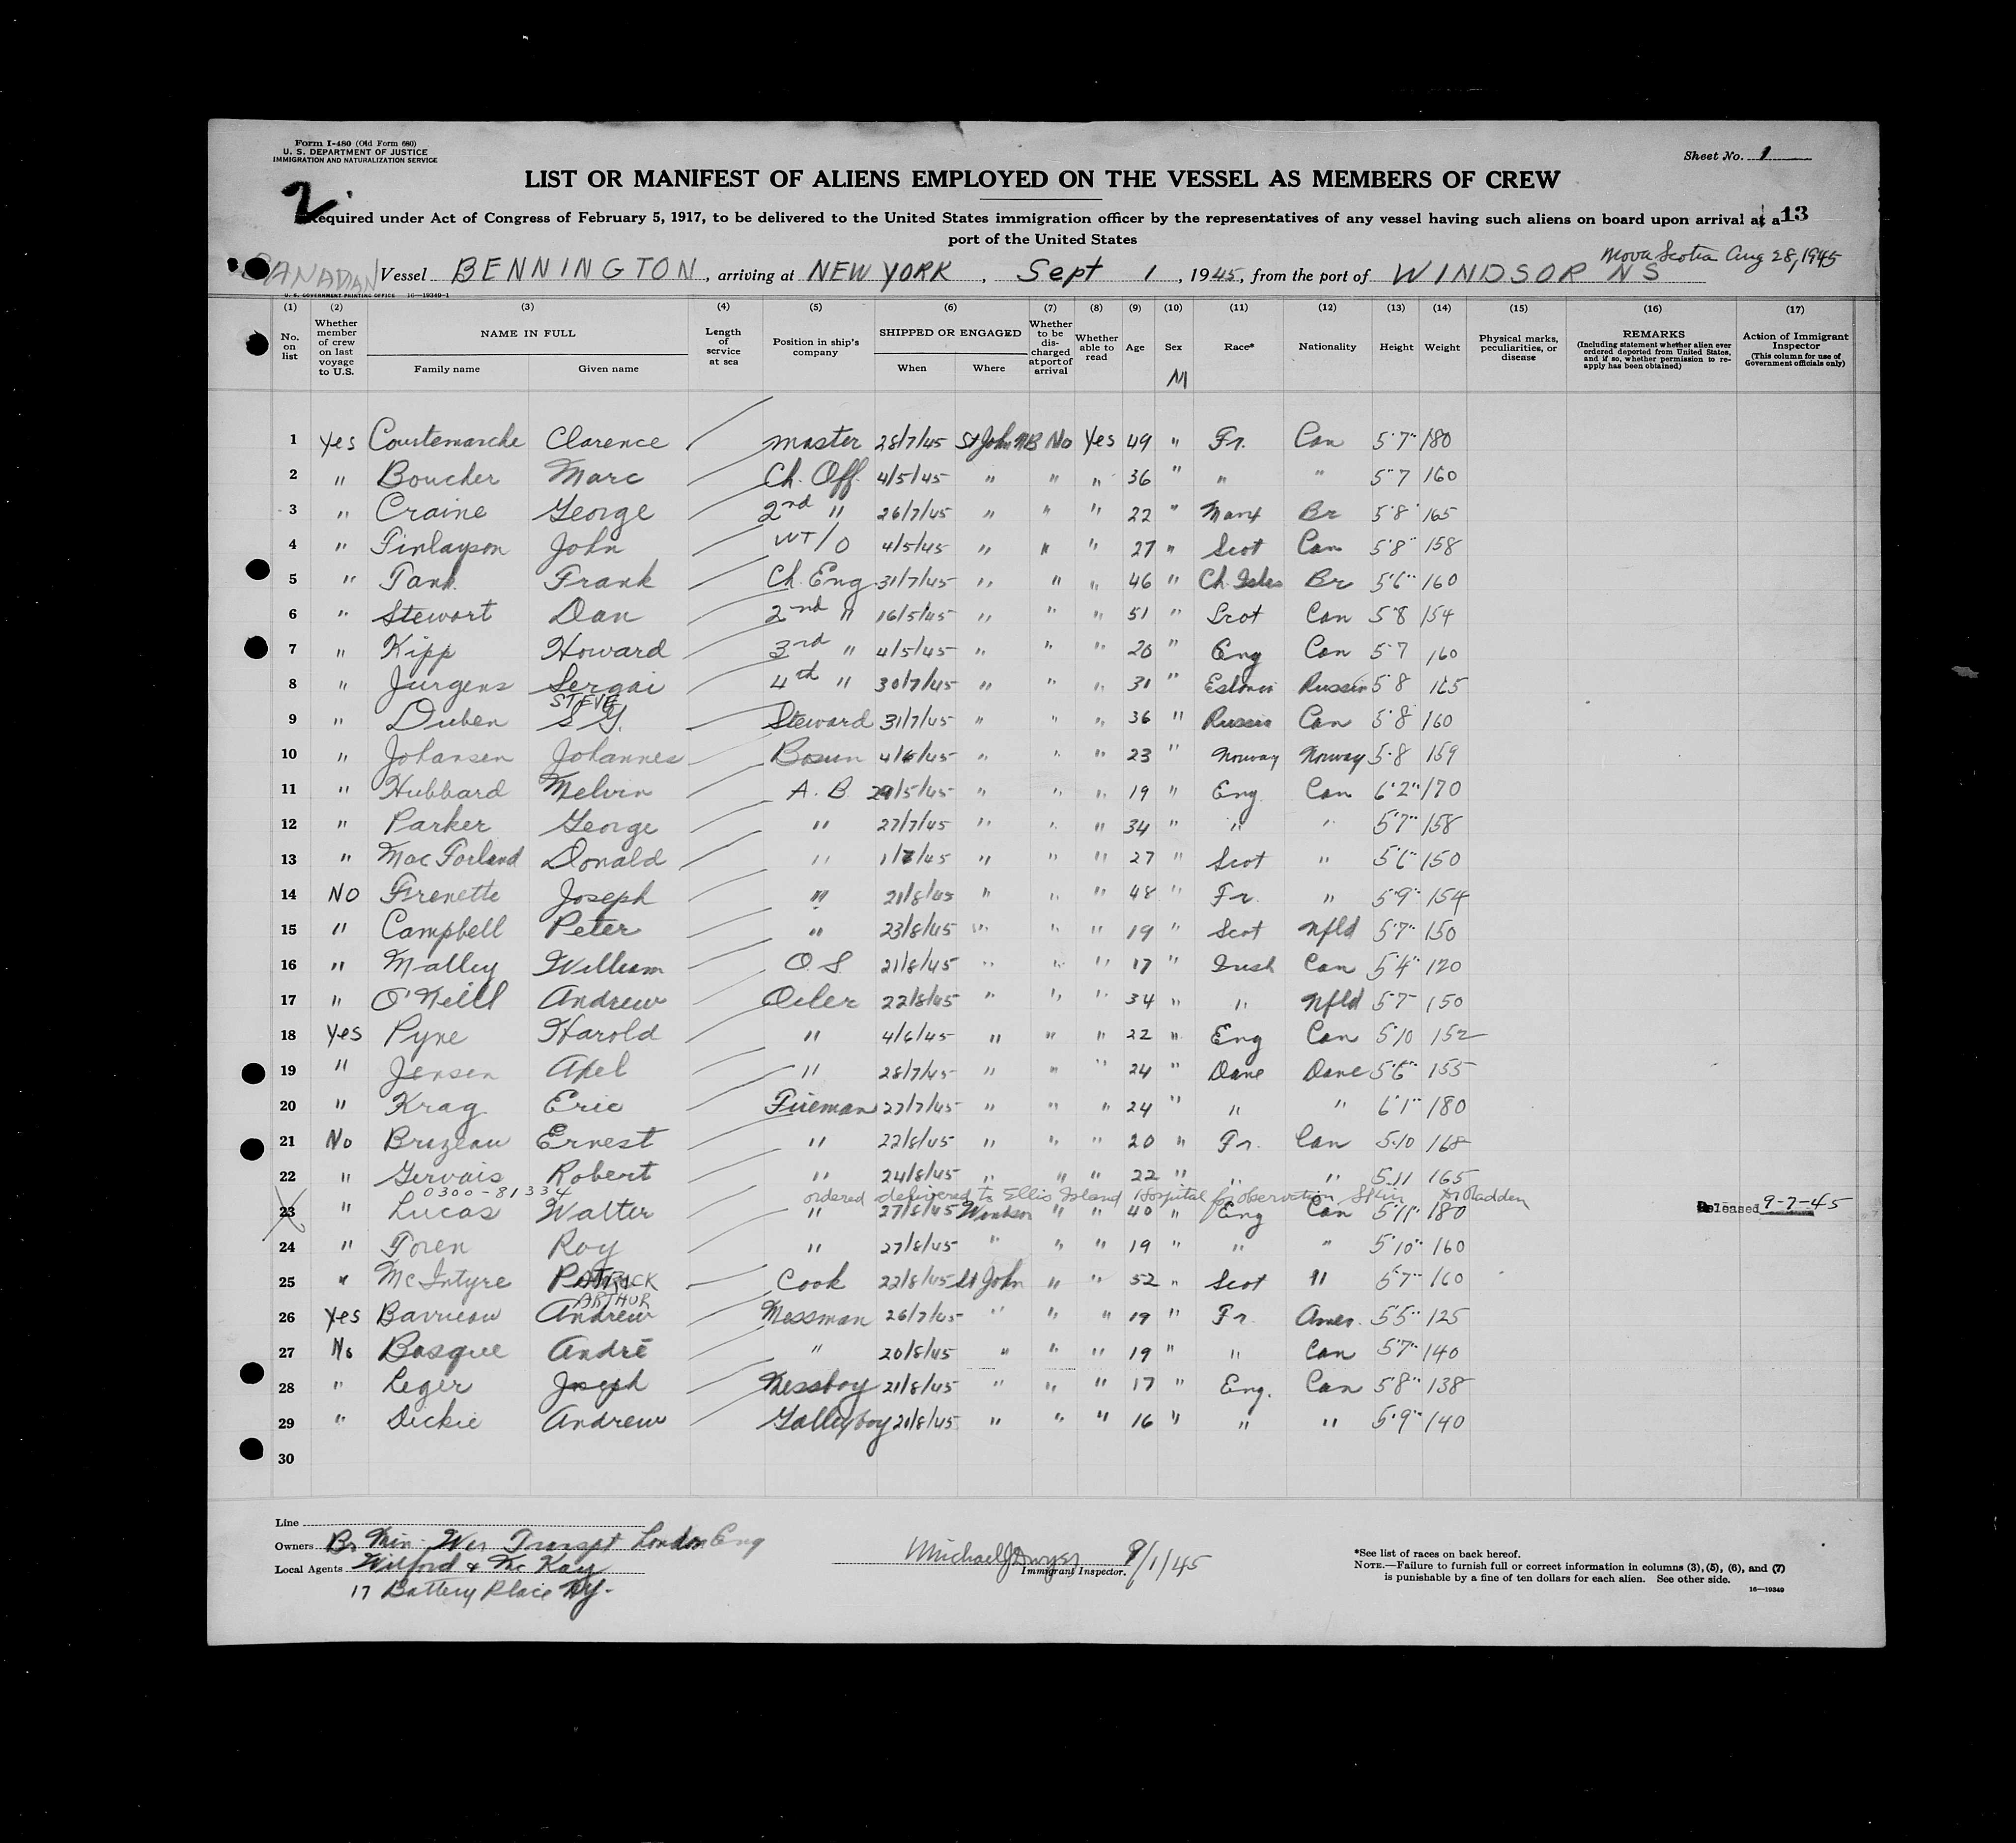 Form I-480 (Old Form 680)
U. S. DEPARTMENT OF JUSTICE
IMMIGRATION AND NATURALIZATION SERVICE
Sheet No. 1
2
LIST OR MANIFEST OF ALIENS EMPLOYED ON THE VESSEL AS MEMBERS OF CREW
Required under Act of Congress of February 5, 1917, to be delivered to the United States immigration officer by the representatives of any vessel having such aliens on board upon arrival at a 13
port of the United States
Nova Scotia Aug 28, 1945
CANADIAN Vessel BENNINGTON, arriving at NEW YORK, Sept 1, 1945, from the port of WINDSOR NS
U. S. GOVERNMENT PRINTING OFFICE 16—19349-1
(1) (2) (3) (4) (5) (6) (7) (8) (9) (10) (11) (12) (13) (14) (15) (16) (17)
No. on list
Whether member of crew on last voyage to U.S.
NAME IN FULL
Family name
Given name
Length of service at sea
Position in ship's company
SHIPPED OR ENGAGED
When
Where
Whether to be discharged at port of arrival
Whether able to read
Age
Sex
M
Race*
Nationality
Height
Weight
Physical marks, peculiarities, or disease
REMARKS
(Including statement whether alien ever ordered deported from United States, and if so, whether permission to reapply has been obtained)
Action of Immigrant Inspector
(This column for use of Government officials only)
1 Yes Courtemarche Clarence master 28/7/45 St John NB No Yes 49 " Fr. Can 5'7" 180
2 " Boucher Marc Ch. Off. 4/5/45 " " " 36 " " " 5'7 160
3 " Craine George 2nd " 26/7/45 " " " 22 " Manx Br 5'8" 165
4 " Finlayson John WT/O 4/5/45 " " " 27 " Scot Can 5'8" 158
5 " Tank Frank Ch. Eng 31/7/45 " " " 46 " Ch. Isles Br 5'6" 160
6 " Stewart Dan 2nd " 16/5/45 " " " 51 " Scot Can 5'8 154
7 " Kipp Howard 3rd " 4/5/45 " " " 20 " Eng Can 5'7 160
8 " Jurgens Sergai 4th " 30/7/45 " " " 31 " Estonia Russia 5'8 165
STEVE
9 " Duben S G. Steward 31/7/45 " " " 36 " Russia Can 5'8 160
10 " Johansen Johannes Bosun 4/6/45 " " " 23 " Norway Norway 5'8 159
11 " Hubbard Melvin A. B. 29/5/45 " " " 19 " Eng. Can 6'2" 170
12 " Parker George " 27/7/45 " " " 34 " " " 5'7" 158
13 " MacFarland Donald " 1/7/45 " " " 27 " Scot " 5'6" 150
14 NO Frenette Joseph " 21/8/45 " " " 48 " Fr. " 5'9" 154
15 " Campbell Peter " 23/8/45 " " " 19 " Scot Nfld 5'7" 150
16 " Malley William O.S. 21/8/45 " " " 17 " Irish Can 5'4" 120
17 " O'Neill Andrew Oiler 22/8/45 " " " 34 " " Nfld 5'7" 150
18 Yes Pyne Harold " 4/6/45 " " " 22 " Eng Can 5'10 152
19 " Jensen Axel " 28/7/45 " " " 24 " Dane Dane 5'6" 155
20 " Krag Eric Fireman 27/7/45 " " " 24 " " " 6'1" 180
21 No Brazeau Ernest " 22/8/45 " " " 20 " Fr. Can 5'10 168
22 " Gervais Robert " 24/8/45 " " " 22 " " " 5'11 165
0300-81334 ordered delivered to Ellis Island Hospital for observation Skin
23 " Lucas Walter " 27/8/45 Windsor " " 40 " Eng Can 5'11" 180 Released 9-7-45
24 " Toren Roy " 27/8/45 " " " 19 " " " 5'10" 160
25 " McIntyre PATRICK Cook 22/8/45 St John " " 52 " Scot " 5'7" 160
ARTHUR
26 Yes Barrieau Andrew Messman 26/7/45 " " " 19 " Fr. Amer. 5'5" 125
27 No Basque André " 20/8/45 " " " 19 " " Can 5'7" 140
28 " Leger Joseph Messboy 21/8/45 " " " 17 " Eng. Can 5'8" 138
29 " Dickie Andrew Galleyboy 21/8/45 " " " 16 " " " 5'9" 140
30
Line
Owners Br. Min. War Transpt London Eng
Local Agents Wilford & McKay
17 Battery Place NY.
Michael J Dwyer 9/1/45
Immigrant Inspector.
*See list of races on back hereof.
NOTE.—Failure to furnish full or correct information in columns (3), (5), (6), and (7)
is punishable by a fine of ten dollars for each alien. See other side.
16—19349